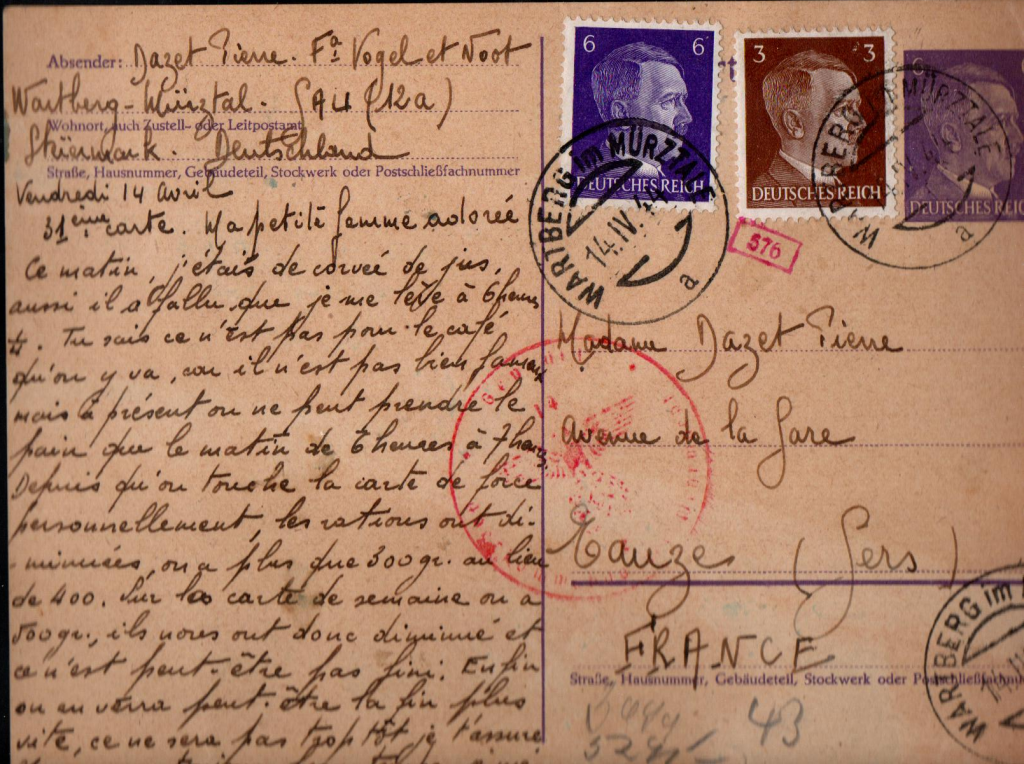 Absender: Dazet Pierre. Fª Vogel et Noot
Wartberg-Mürztal. GAU (12a)
Wohnort, auch Zustell- oder Leitpostamt
Steiermark. Deutschland
Straße, Hausnummer, Gebäudeteil, Stockwerk oder Postschließfachnummer
Vendredi 14 Avril
31ème carte. Ma petite femme adorée
Ce matin, j'étais de corvée de jus,
aussi il a fallu que je me lève à 6 heures
Tu sais ce n'est pas pour le café
qu'on y va, car il n'est pas bien fameux
mais à présent on ne peut prendre le
pain que le matin de 6 heures à 7 heures
Depuis qu'on touche la carte de force
personnellement, les rations ont di-
minuées, on a plus que 300gr. au lieu
de 400. Sur la carte de semaine on a
500gr., ils nous ont donc diminué et
ce n'est peut-être pas fini. Enfin
on en verra peut-être la fin plus
vite, ce ne sera pas trop tôt je t'assure
6 6
DEUTSCHES REICH
3 3
DEUTSCHES REICH
6
DEUTSCHES REICH
WARTBERG im MÜRZTALE
14.IV.44
a
WARTBERG im MÜRZTALE
a
576
Madame Dazet Pierre
Avenue de la Gare
Eauze (Gers)
FRANCE
Straße, Hausnummer, Gebäudeteil, Stockwerk oder Postschließfachnu
WARTBERG im
14.IV
43